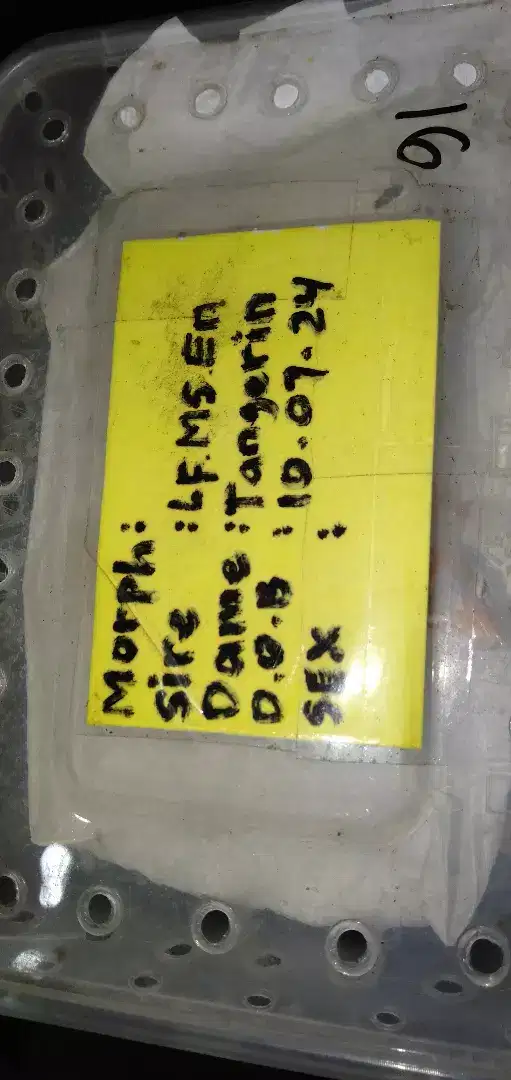 16
Morph:
Sire :LF.MS.En
Dame :Tangerin
D.O.B : 10.07.24
SEX :